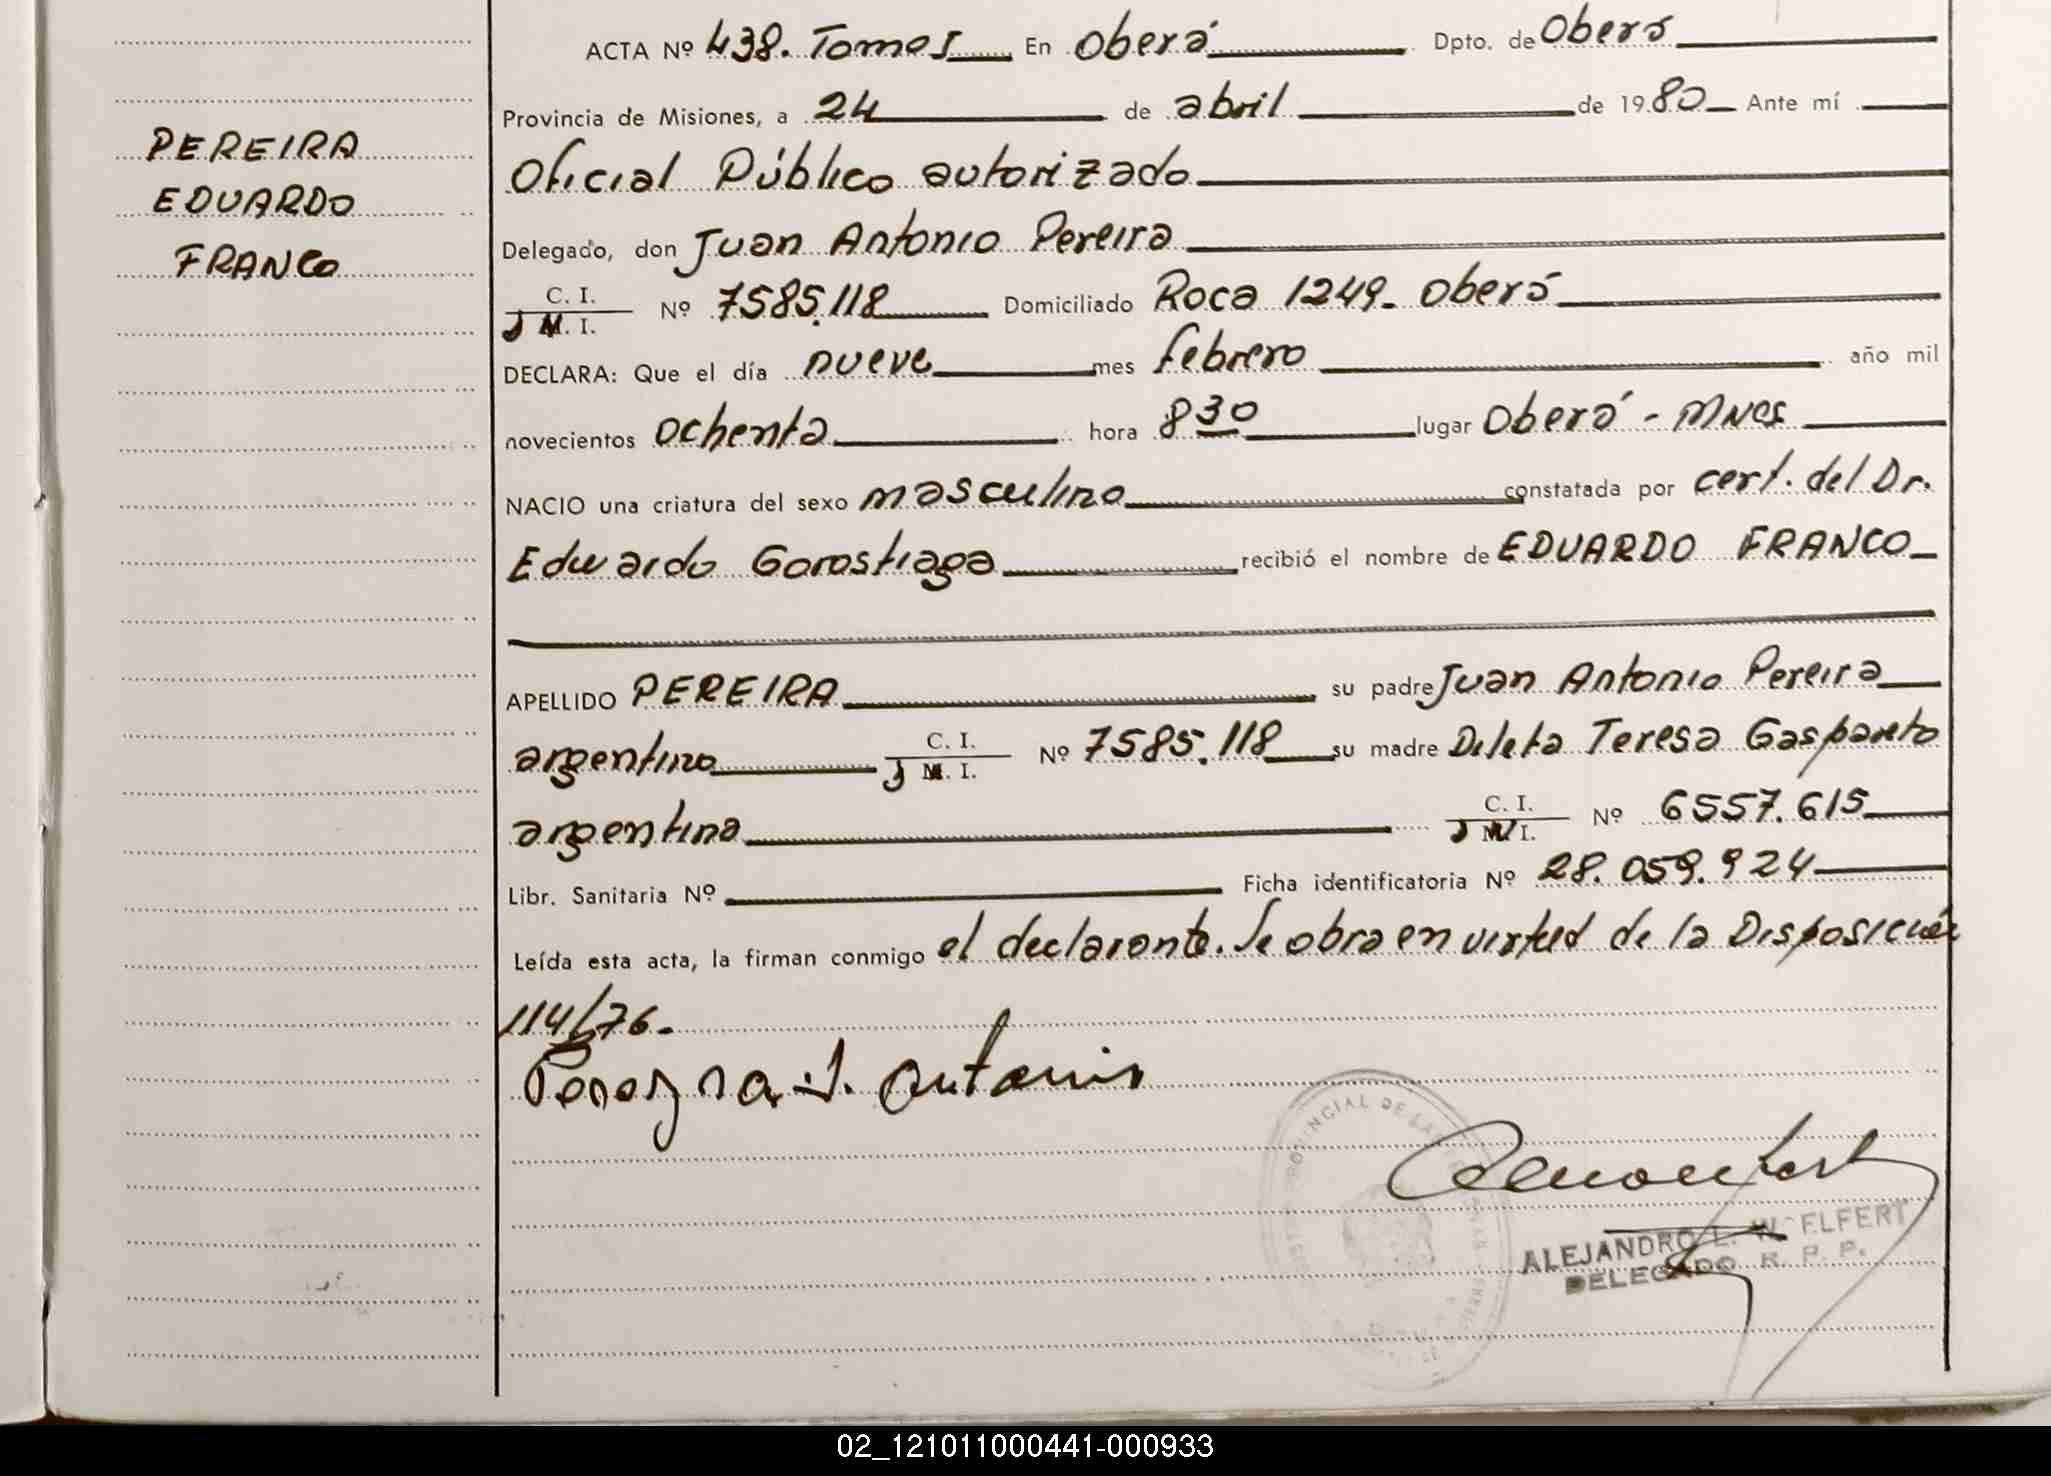 ACTA Nº 438. Tomo I En Oberá Dpto. de Oberá
Provincia de Misiones, a 24 de abril de 1980 Ante mí
PEREIRA
EDUARDO
FRANCO
Oficial Público autorizado
Delegado, don Juan Antonio Pereira
C. I.
D M. I. Nº 7585.118 Domiciliado Roca 1249. Oberá
DECLARA: Que el día nueve mes febrero año mil
novecientos ochenta hora 8 30 lugar Oberá - Mnes
NACIO una criatura del sexo masculino constatada por cert. del Dr.
Eduardo Gorostiaga recibió el nombre de EDUARDO FRANCO
APELLIDO PEREIRA su padre Juan Antonio Pereira
argentino C. I.
D M. I. Nº 7585.118 su madre Teresa Gaspareto
argentina C. I.
D M. I. Nº 6557.615
Libr. Sanitaria Nº Ficha identificatoria Nº 28.059.924
Leída esta acta, la firman conmigo el declarante. Se obra en virtud de la Disposición
114/76.
Pereyra J. Antonio
ALEJANDRO L. W. ELFERT
DELEGADO R. P. P.
02_121011000441-000933